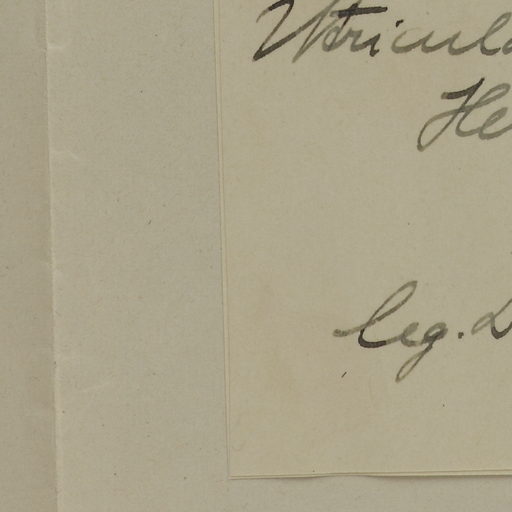 Utricula
He
leg. D